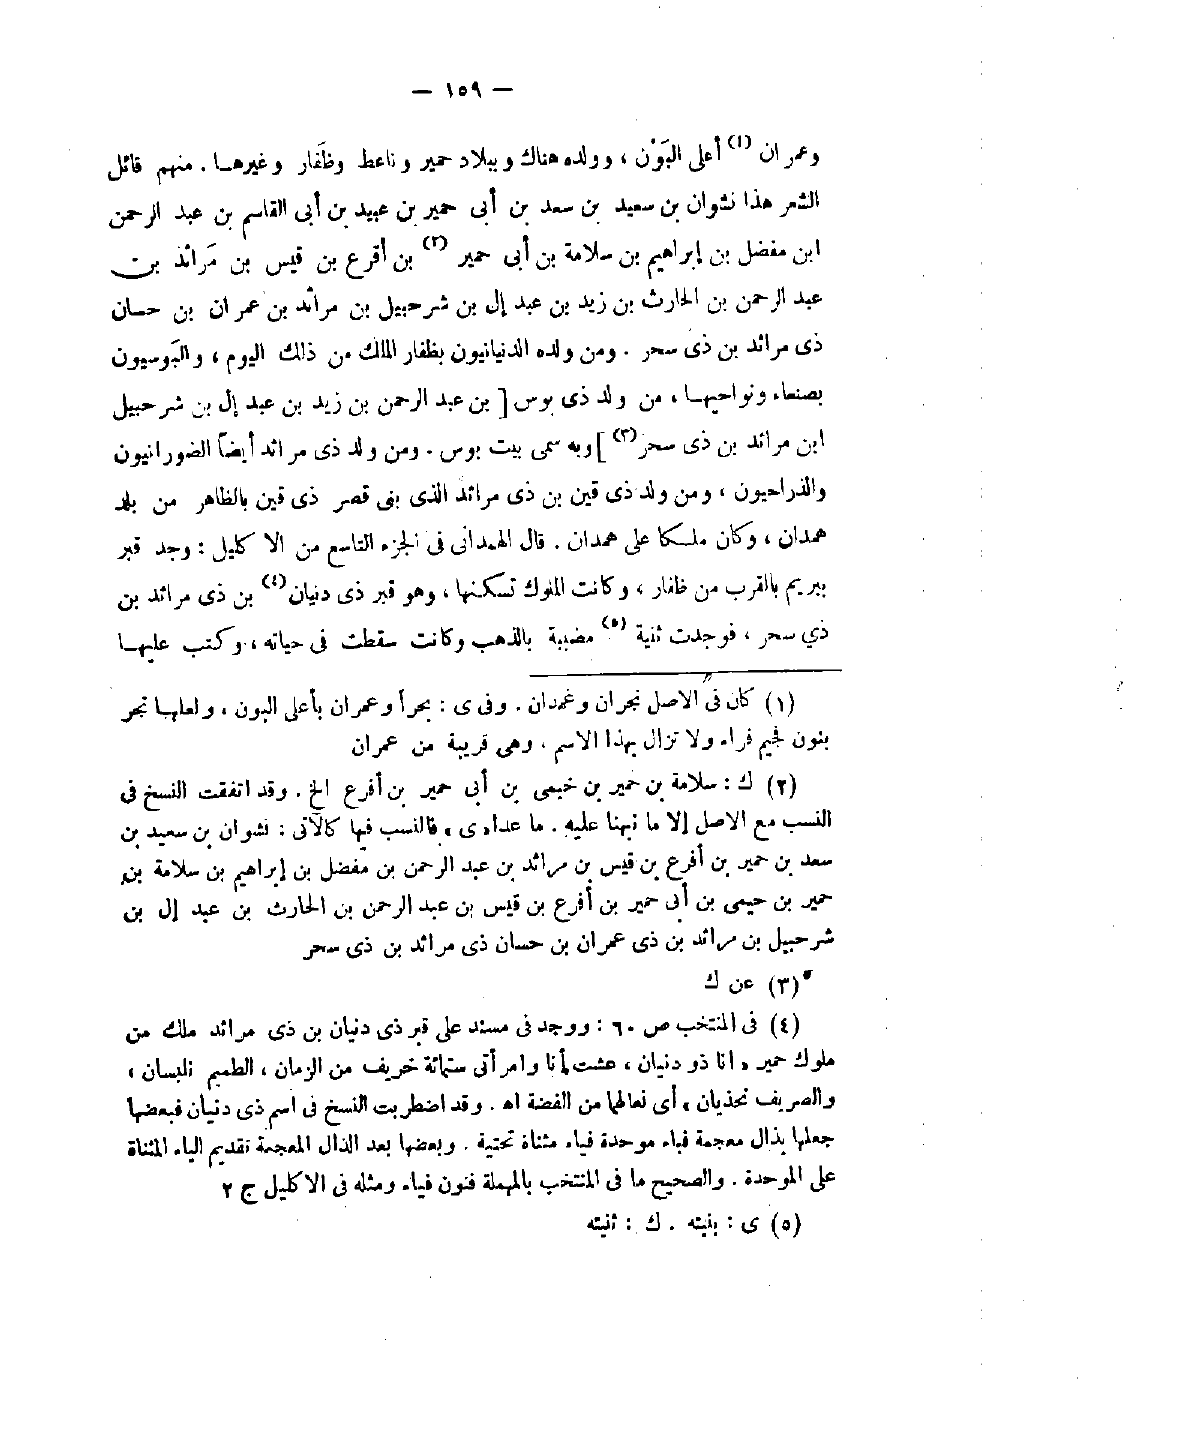 — ١٥٩ —
وعمران (١) أعلى البَوْن ، وولده هناك وببلاد حمير وناعط وظَفار وغيرهـا . منهم قائل
الشعر هذا نشوان بن سعيد بن سعد بن أبى حمير بن عبيد بن أبى القاسم بن عبد الرحمن
ابن مفضل بن إبراهيم بن سلامة بن أبى حمير (٢) بن أقرع بن قيس بن مَرائد بن
عبد الرحمن بن الحارث بن زيد بن عبد إل بن شرحبيل بن مرائد بن عمران بن حسان
ذى مرائد بن ذى سحر . ومن ولده الدنيانيون بظفار المالك من ذلك اليوم ، والبَوسيون
بصنعاء ونواحيهـا ، من ولد ذى بوس [ بن عبد الرحمن بن زيد بن عبد إل بن شرحبيل
ابن مرائد بن ذى سحر (٣) ] وبه سمى بيت بوس . ومن ولد ذى مرائد أيضاً الضورانيون
والذراحيون ، ومن ولد ذى قين بن ذى مرائد الذى بنى قصر ذى قين بالظاهر من بلد
همدان ، وكان ملـكا على همدان . قال الهمدانى فى الجزء التاسع من الاكليل : وجد قبر
بيريم بالقرب من ظفار ، وكانت الملوك تسكنها ، وهو قبر ذى دنيان (٤) بن ذى مرائد بن
ذي سحر ، فوجدت ثنية (٥) مضببة بالذهب وكانت سقطت فى حياته ، وكتب عليهـا
(١) كان فى الاصل نجران وغمدان . وفى ى : بحرأ وعمران بأعلى البون ، ولعلهـا نجر
بنون فجيم فراء ولا تزال بهذا الاسم ، وهى قريبة من عمران
(٢) ك : سلامة بن حمير بن خيمى بن أبى حمير بن أفرع الخ . وقد اتفقت النسخ فى
النسب مع الاصل إلا ما نبهنا عليه . ما عداء ى ، فالنسب فيها كالآتى : نشوان بن سعيد بن
سعد بن حمير بن أفرع بن قيس بن مرائد بن عبد الرحمن بن مفضل بن إبراهيم بن سلامة بن
حمير بن حيمى بن أبى حمير بن أفرع بن قيس بن عبد الرحمن بن الحارث بن عبد إل بن
شرحبيل بن مرائد بن ذى عمران بن حسان ذى مرائد بن ذى سحر
(٣) عن ك
(٤) فى المنتخب ص ٦٠ : ووجد فى مسند على قبر ذى دنيان بن ذى مرائد ملك من
ملوك حمير ، انا ذو دنيان ، عشت أنا وامرأتى ستمائة خريف من الزمان ، الطميم نلبسان ،
والصريف نحذيان ، أى نعالها من الفضة اه . وقد اضطربت النسخ فى اسم ذى دنيان فبعضها
جعلها بذال معجمة فباء موحدة فياء مثناة تحتية . وبعضها بعد الذال المعجمة تقديم الياء المثناة
على الموحدة . والصحيح ما فى المنتخب بالمهملة فنون فياء ومثله فى الاكليل ج ٢
(٥) ى : بنيته . ك : ثنيته